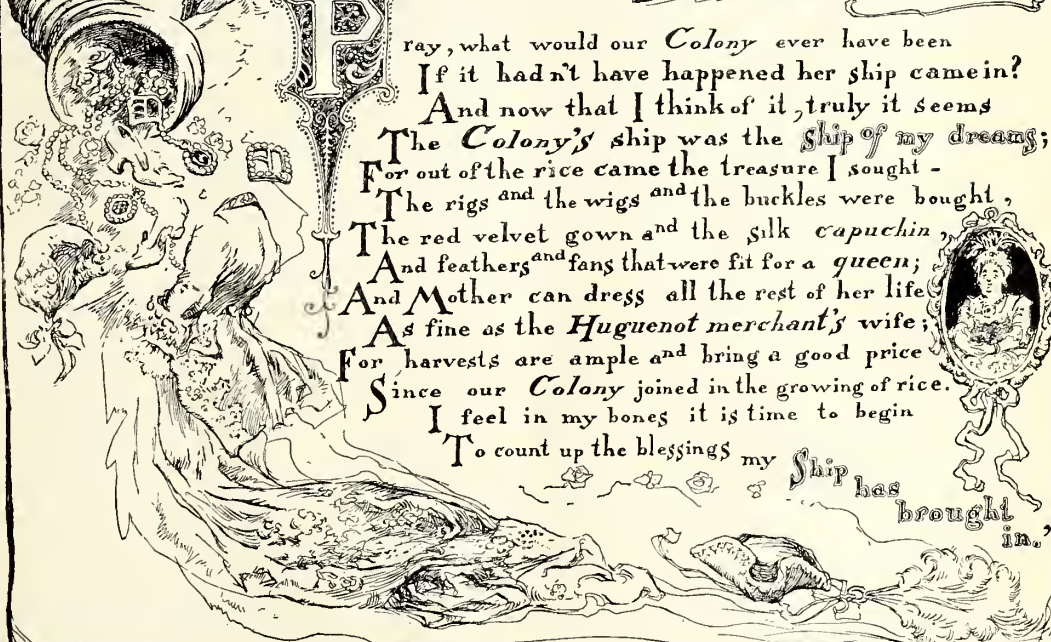 Pray, what would our Colony ever have been
If it hadn't have happened her ship came in?
And now that I think of it, truly it seems
The Colony's ship was the ship of my dreams;
For out of the rice came the treasure I sought -
The rigs and the wigs and the buckles were bought,
The red velvet gown and the silk capuchin,
And feathers and fans that were fit for a queen;
And Mother can dress all the rest of her life
As fine as the Huguenot merchant's wife;
For harvests are ample and bring a good price
Since our Colony joined in the growing of rice.
I feel in my bones it is time to begin
To count up the blessings my Ship has brought in.’